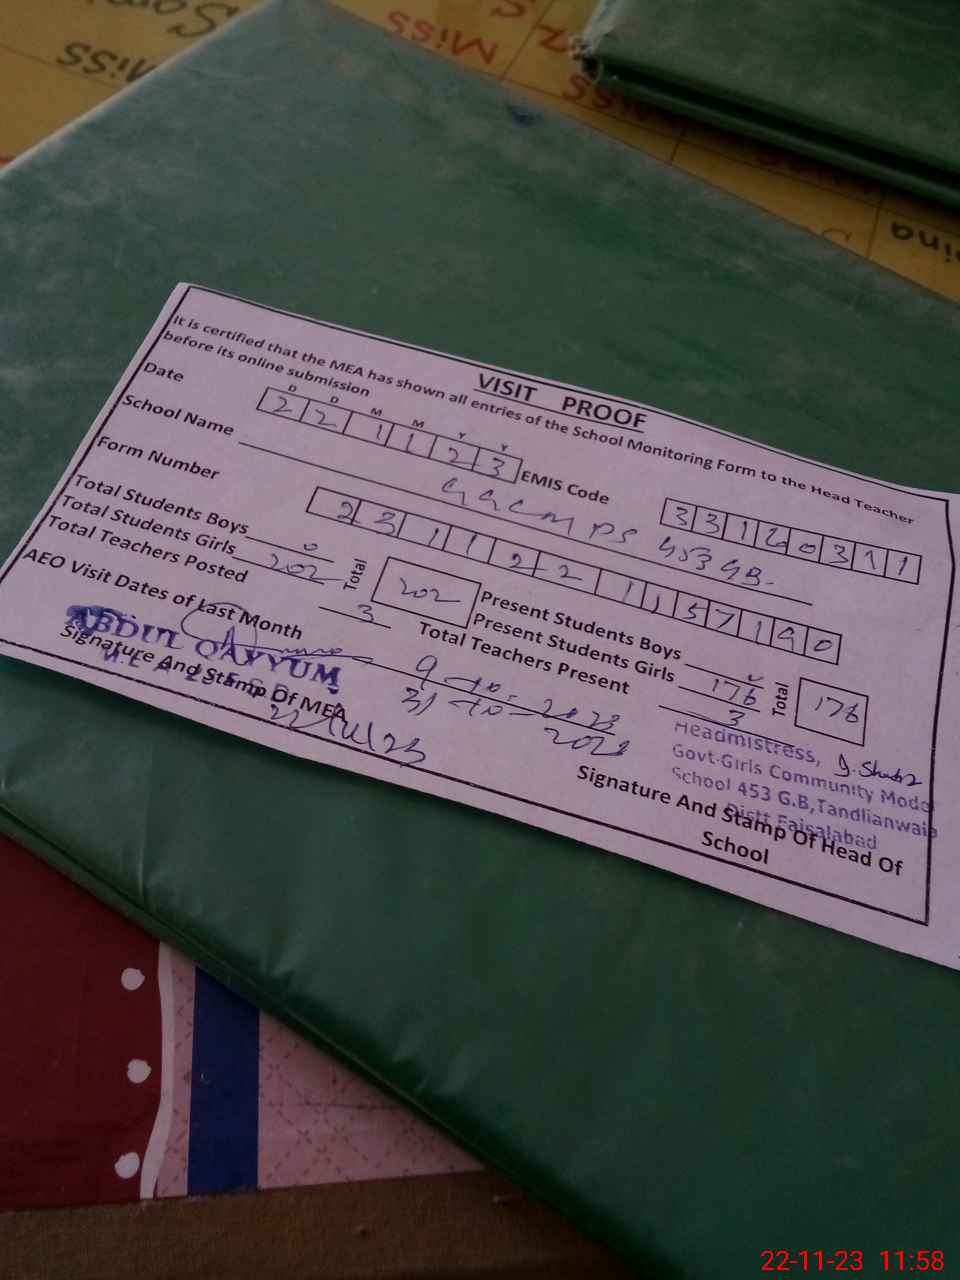 Miss
Miss
Miss
VISIT PROOF
It is certified that the MEA has shown all entries of the School Monitoring Form to the Head Teacher
before its online submission
D D M M Y Y
Date 2 2 1 1 2 3 EMIS Code 3 3 1 2 0 3 1 1
School Name GGCMPS 453 GB.
Form Number 2 3 1 1 2 2 1 1 5 7 1 9 0
Total Students Boys 0 Present Students Boys 0
Total Students Girls 202 Total 202 Present Students Girls 176 Total 176
Total Teachers Posted 3 Total Teachers Present 3
AEO Visit Dates of Last Month 9-10-2023
31-10-2023
ABDUL QAYYUM
Signature And Stamp Of MEA
22/11/23
Headmistress,
Govt-Girls Community Model
School 453 G.B,Tandlianwala
Distt Faisalabad
Signature And Stamp Of Head Of
School
22-11-23 11:58